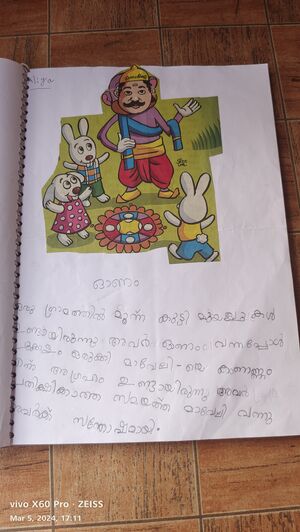 Aliya
ഓണം
ഒരു ഗ്രാമത്തിൽ മൂന്ന് കുട്ടി മുയലുകൾ
ഉണ്ടായിരുന്നു അവർ ഓണം വന്നപ്പോൾ
പൂക്കളം ഒരുക്കി മാവേലി-യെ കാണണം
എന്ന് അഗ്രഹം ഉണ്ടായിരുന്നു അവർ
പ്രതിക്ഷിക്കാത്ത സമയത്ത് മാവേലി വന്നു
അവർക്ക് സന്തോഷമായി.
vivo X60 Pro · ZEISS
Mar 5, 2024, 17:11